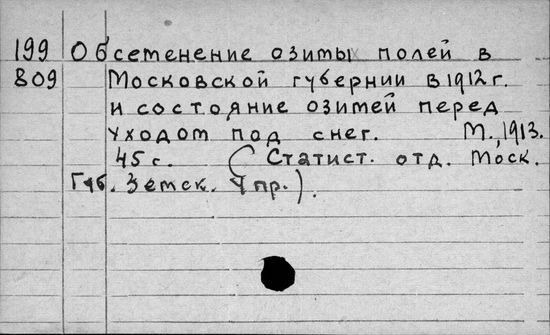 199 Обсеменение озимых полей в
809 Московской губернии в 1912 г.
и состояние озимей перед
уходом под снег. М., 1913.
45 с. (Статист. отд. Моск.
Губ. Земск. Упр.).